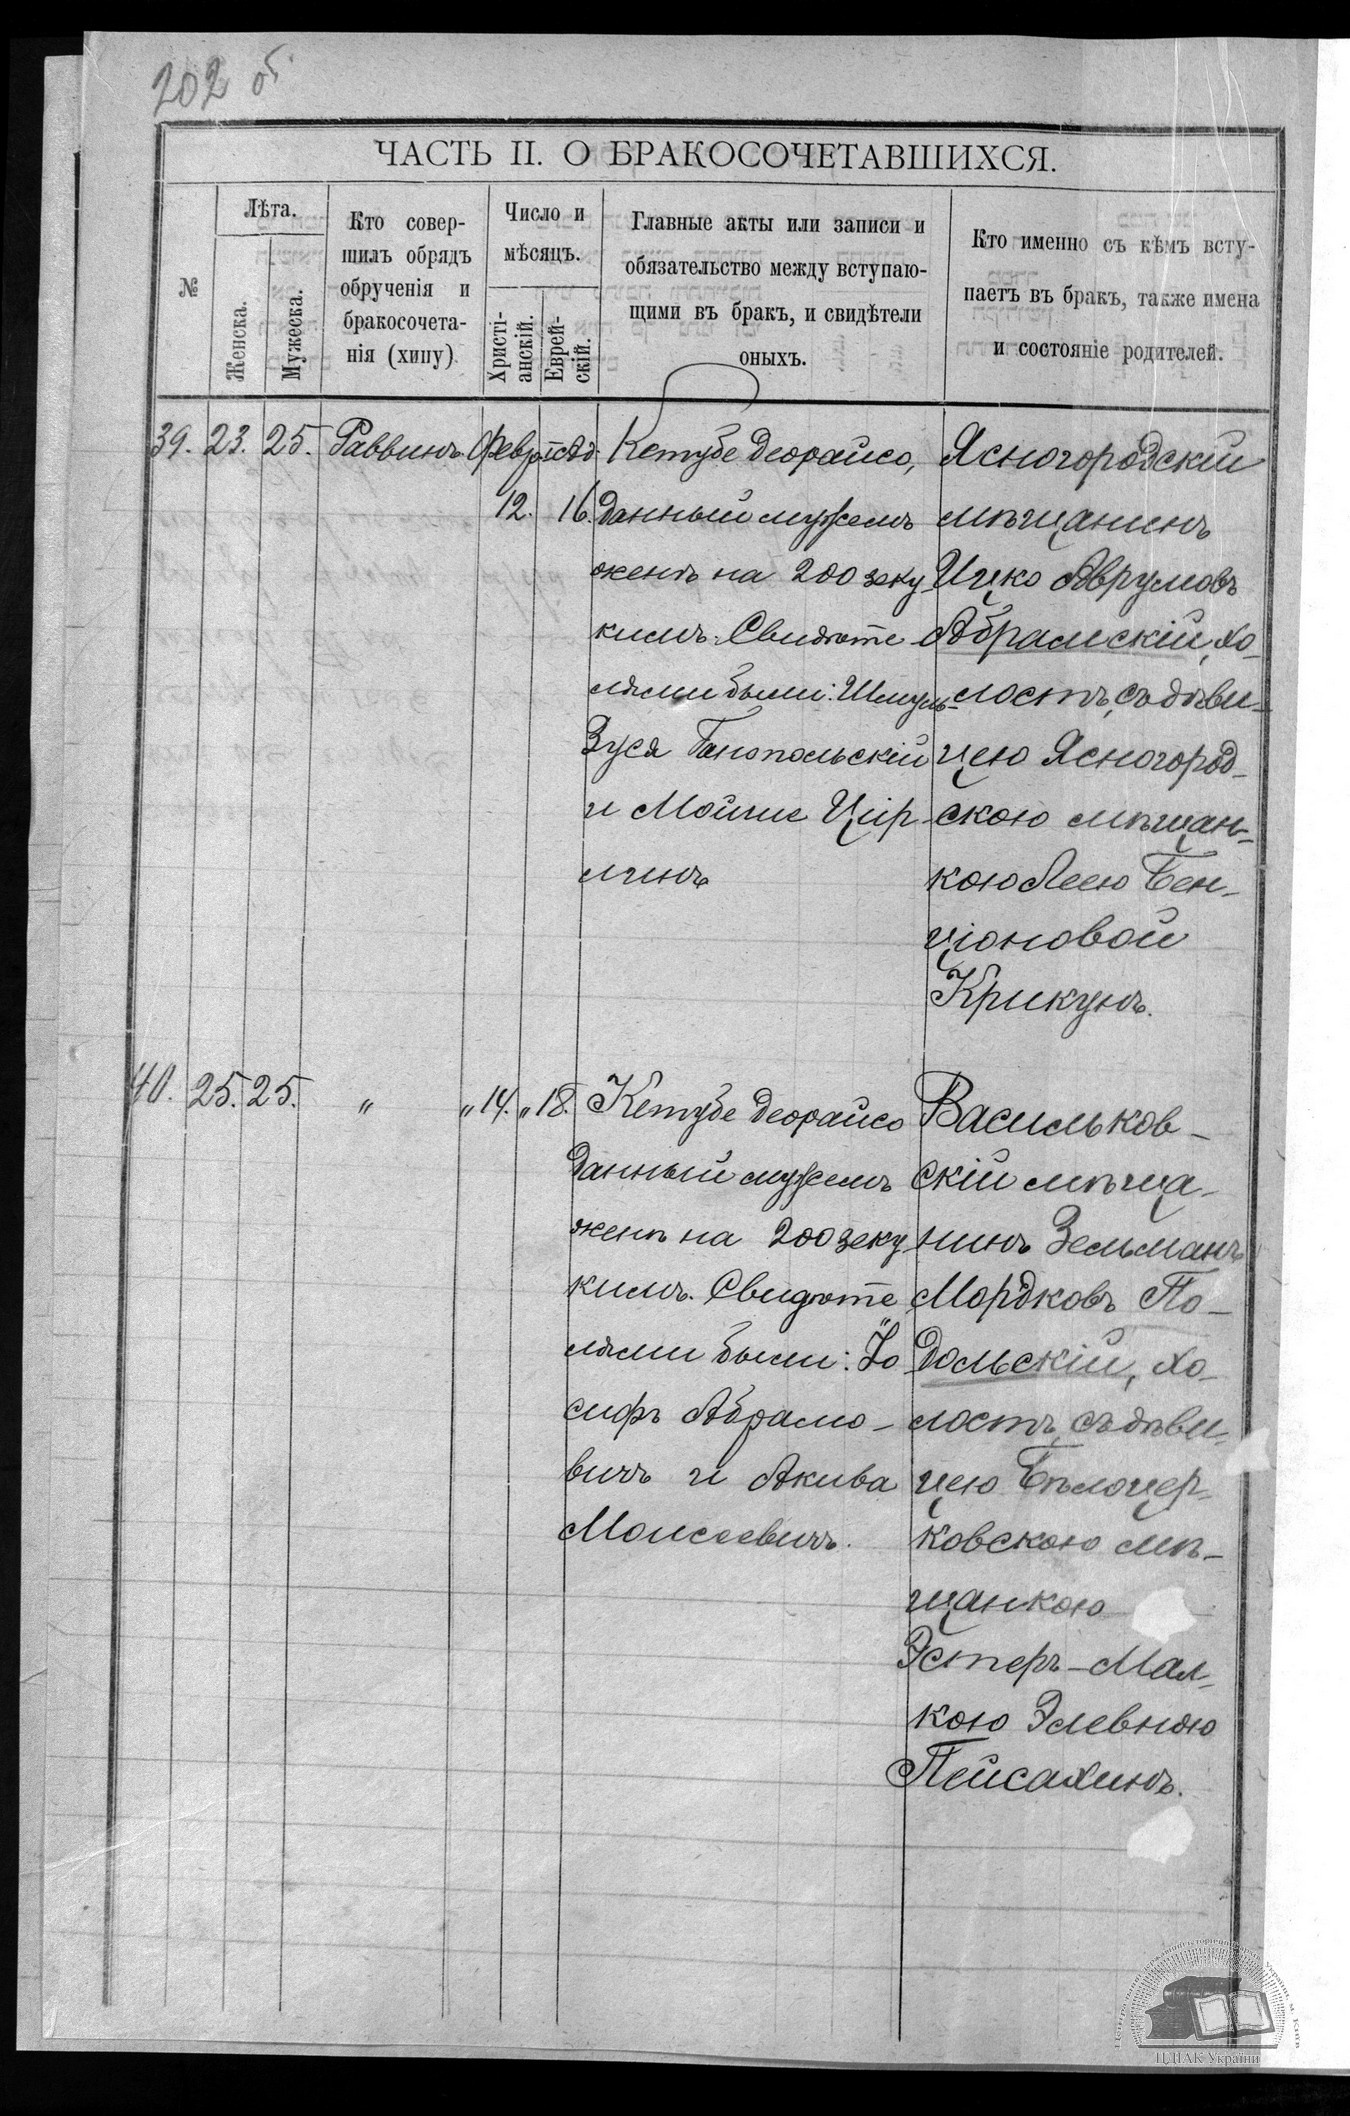 202 об
ЧАСТЬ II. О БРАКОСОЧЕТАВШИХСЯ.
№
Лѣта.
Женска.
Мужеска.
Кто совер-
шилъ обрядъ
обрученія и
бракосочета-
нія (хипу)
Число и
мѣсяцъ.
Христі-
анскій.
Еврей-
скій.
Главные акты или записи и
обязательство между вступаю-
щими въ бракъ, и свидѣтели
оныхъ.
Кто именно съ кѣмъ всту-
паетъ въ бракъ, также имена
и состояніе родителей.
39. 23. 25. Раввинъ
Февр
12. 16.
Кетубе деорайсо,
данный мужемъ
женѣ на 200 зеку
кимъ. Свидѣте
лями были: Шмуль-
Зуся Ганопольскій
и Мойше Цір
линъ
Ясногородскій
мѣщанинъ
Ицко Аврумовъ
Абрамскій, хо-
лостъ, съ дѣви-
цею Ясногород-
скою мѣщан-
кою Леею Бен-
ціоновой
Крикунъ.
40. 25. 25. " " 14. " 18.
Кетубе деорайсо
данный мужемъ
женѣ на 200 зеку
кимъ. Свидѣте
лями были: Іо
сифъ Абрамо-
вичъ и Акива
Моисеевичъ.
Васильков-
скій мѣща-
нинъ Зельманъ
Мордковъ По-
дольскій, хо-
лостъ, съ дѣви-
цею Бѣлоцер-
ковскою мѣ-
щанкою
Эстеръ-Мал-
кою Элевною
Пейсахинъ.
ЦДІАК України